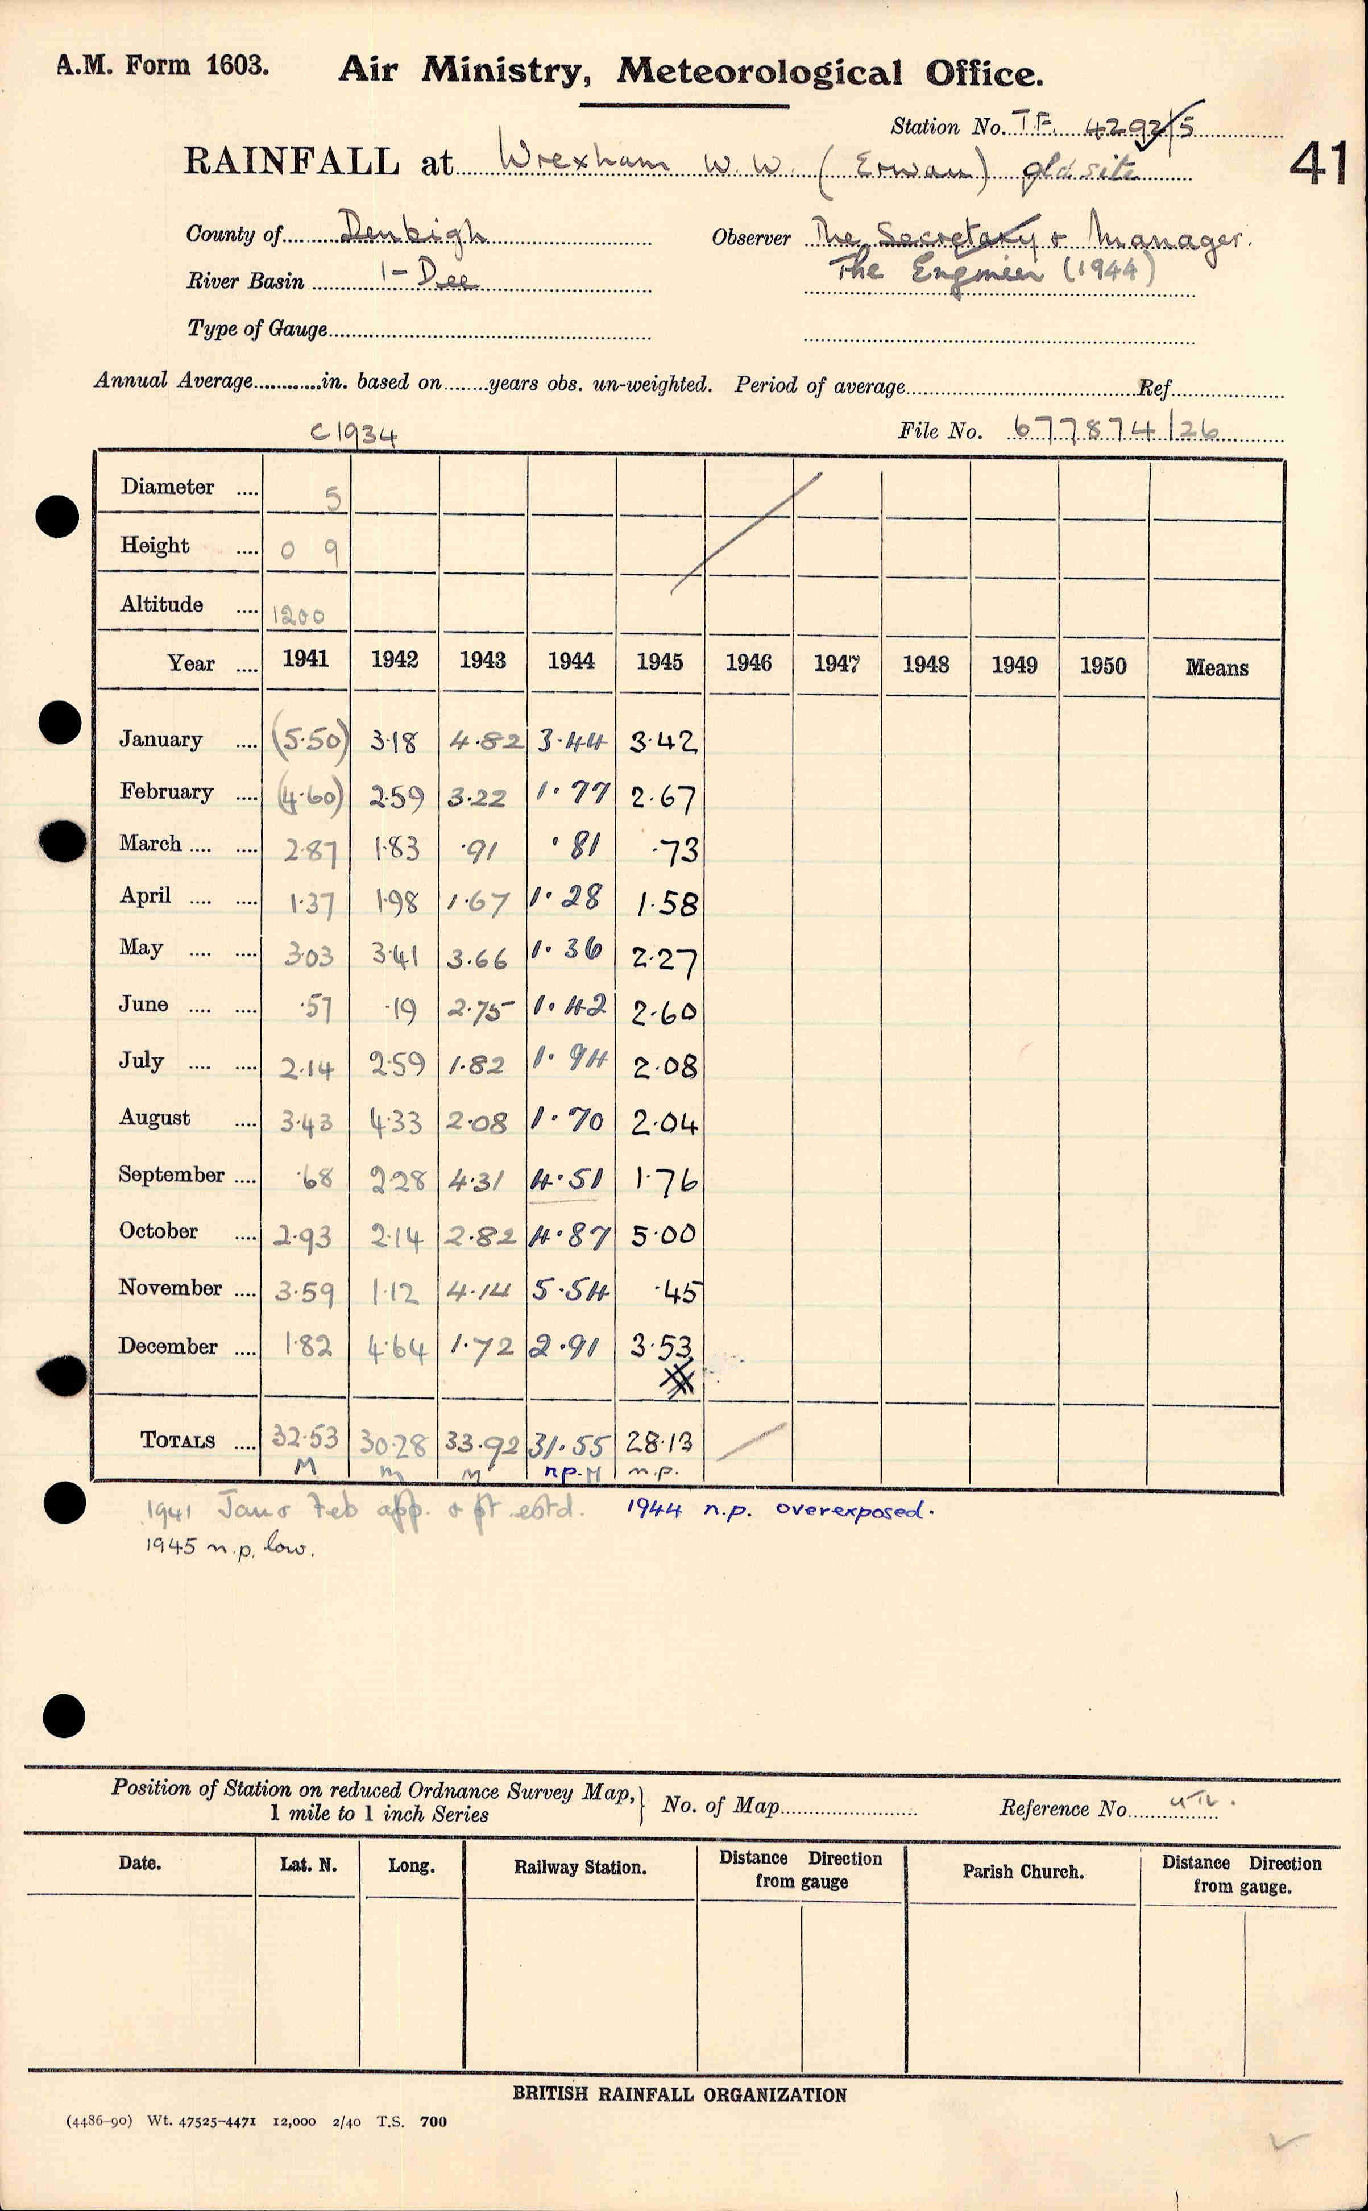 A.M. Form 1603. Air Ministry, Meteorological Office.
Station No. T.F. 4292/5
RAINFALL at Wrexham W.W. (Erwau) old site
41
County of Denbigh Observer The Secretary & Manager.
River Basin 1-Dee The Engineer (1944)
Type of Gauge
Annual Average in. based on years obs. un-weighted. Period of average Ref.
c1934 File No. 677874/26
Diameter .... 5
Height .... 0 9
Altitude .... 1200
Year .... 1941 1942 1943 1944 1945 1946 1947 1948 1949 1950 Means
January .... (5.50) 3.18 4.82 3.44 3.42
February .... (4.60) 2.59 3.22 1.77 2.67
March .... .... 2.87 1.83 .91 .81 .73
April .... .... 1.37 1.98 1.67 1.28 1.58
May .... .... 3.03 3.41 3.66 1.36 2.27
June .... .... .57 .19 2.75 1.42 2.60
July .... .... 2.14 2.59 1.82 1.94 2.08
August .... 3.43 4.33 2.08 1.70 2.04
September .... .68 2.28 4.31 4.51 1.76
October .... 2.93 2.14 2.82 4.87 5.00
November .... 3.59 1.12 4.14 5.54 .45
December .... 1.82 4.64 1.72 2.91 3.53
TOTALS .... 32.53 30.28 33.92 31.55 28.13
M m M n.p. M n.p.
1941 Jan & Feb app. & pt estd. 1944 n.p. overexposed.
1945 n.p. low.
Position of Station on reduced Ordnance Survey Map,
1 mile to 1 inch Series
No. of Map Reference No.
Date. Lat. N. Long. Railway Station. Distance Direction from gauge Parish Church. Distance Direction from gauge.
BRITISH RAINFALL ORGANIZATION
(4486-90) Wt. 47525-4471 12,000 2/40 T.S. 700